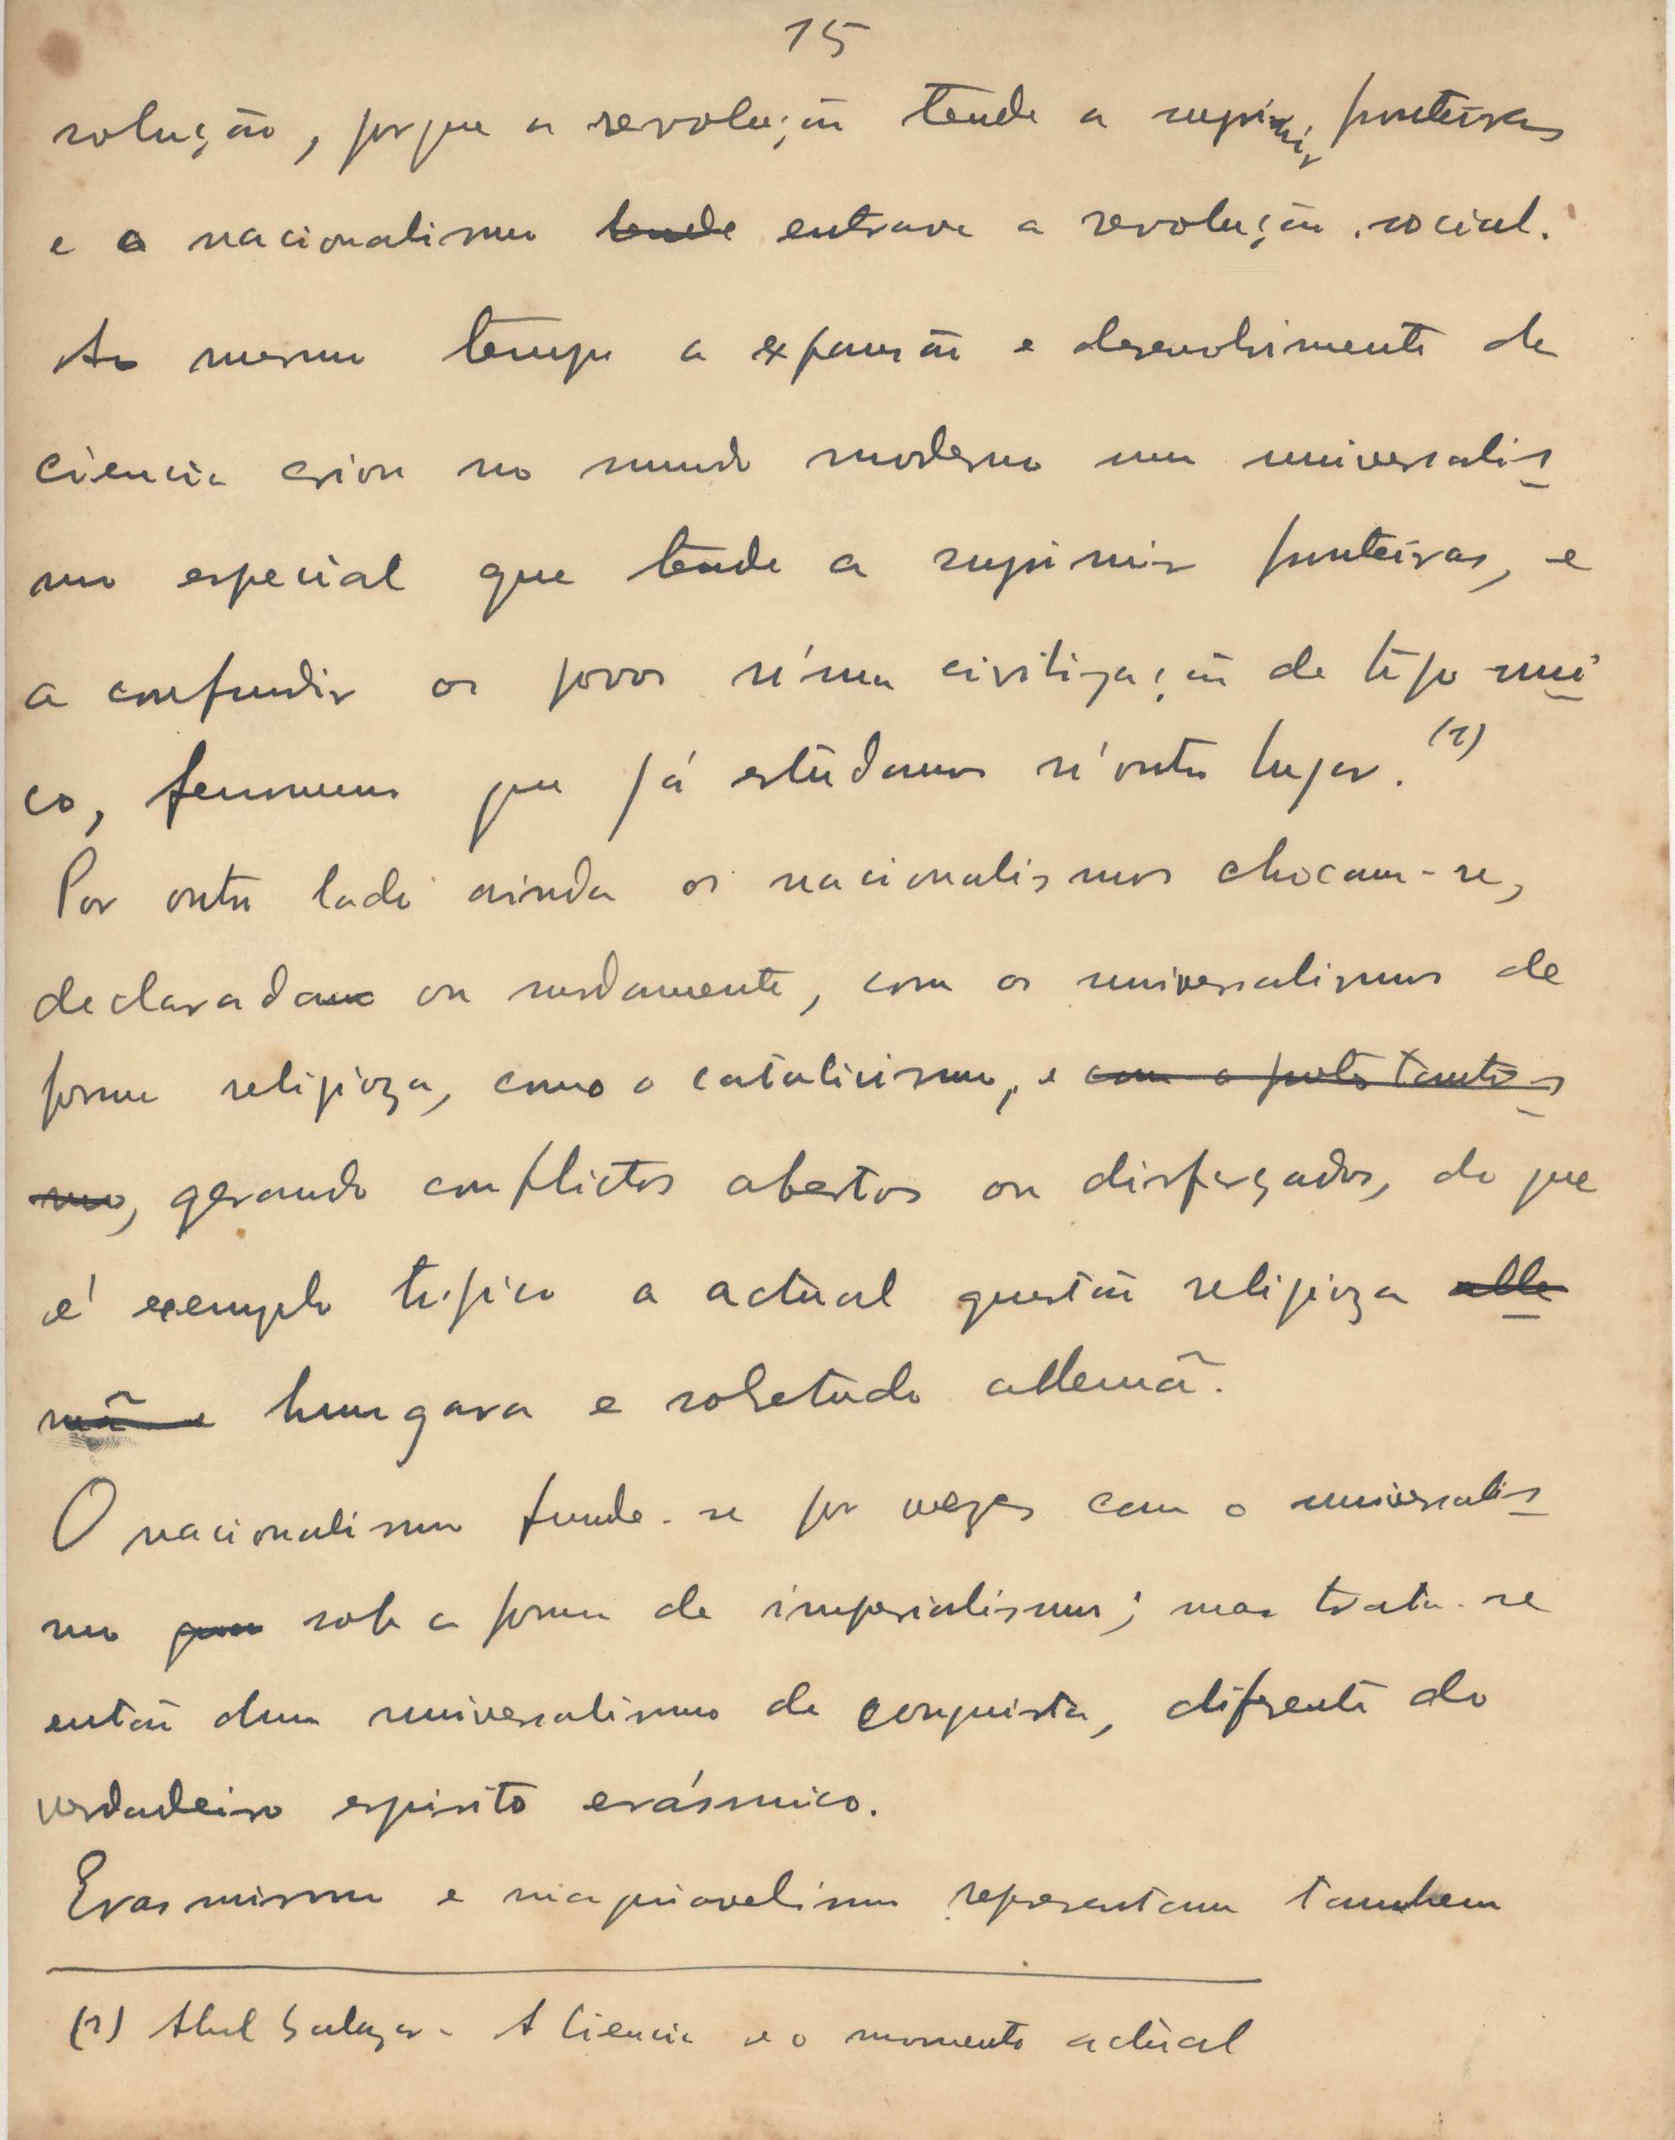 15
solução, porque a revolução tende a suprimir fronteiras
e o nacionalismo tende entrava a revolução social.
Ao mesmo tempo a expansão e desenvolvimento da
ciencia criou no mundo moderno um universalis
mo especial que tende a suprimir fronteiras, e
a confundir os povos n'uma civilização de tipo uni
co, fenomeno que já estudamos n'outro lugar. (1)
Por outro lado ainda os nacionalismos chocam-se,
declarada ou surdamente, com os universalismos de
forma religioza, como o catolicismo, e com o protestantis
mo, gerando conflictos abertos ou disfarçados, do que
é exemplo tipico a actual questão religioza alle
mã e hungara e sobretudo allemã.
O nacionalismo funde-se por vezes com o universalis
mo sob a forma de imperialismo; mas trata-se
então dum universalismo de conquista, diferente do
verdadeiro espirito erásmico.
Erasmismo e maquiavelismo representam tambem
(1) Abel Salazar - A Ciencia e o momento actual